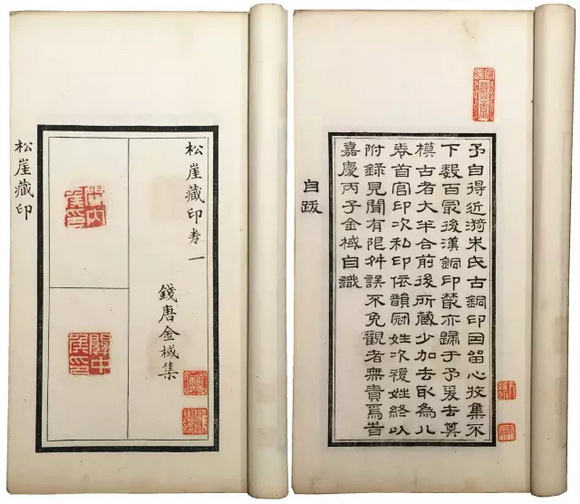 松崖藏印卷一
錢唐金棫集
關內侯印
關中侯印
松崖藏印
予自得近漪朱氏古銅印因留心收集不
下數百最後漢銅印叢亦歸于予爰去其
模古者大半合前後所藏少加去取為八
卷首官印次私印依韻冠姓次複姓終以
附錄見聞有限舛誤不免觀者無責焉旹
嘉慶丙子金棫自識
自跋